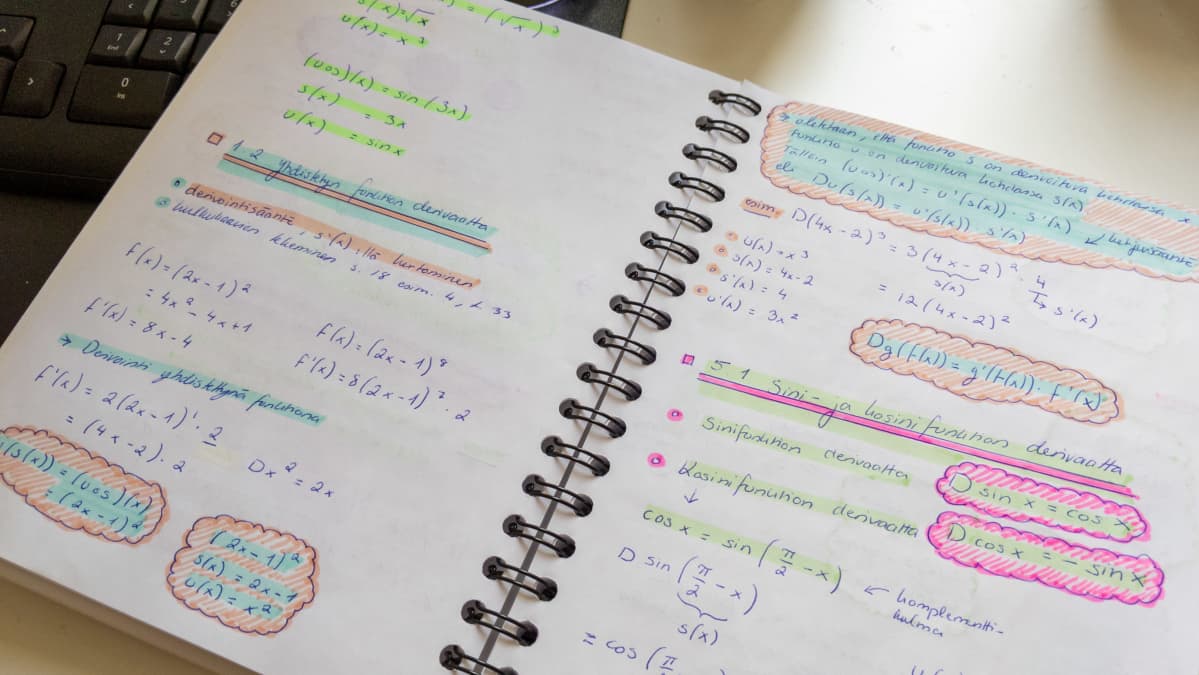 s(x)=√x
= (√x)³
u(x) = x³
(u∘s)(x) = sin(3x)
s(x) = 3x
u(x) = sin x
1 2 yhdistetyn funktion derivaatta
derivointisääntö, s'(x):llä kertominen
kulkukaavion tekeminen s. 18 esim. 4,
f(x) = (2x-1)²
= 4x² - 4x + 1
f'(x) = 8x - 4
f(x) = (2x-1)⁸
f'(x) = 8(2x-1)⁷ · 2
→ Derivointi yhdistettynä funktiona
f'(x) = 2(2x-1)¹ · 2
= (4x-2) · 2
Dx² = 2x
(s(x)) = (u∘s)(x)
= (2x-1)²
(2x-1)²
s(x) = 2x-1
u(x) = x²
→ oletetaan, että funktio s on derivoituva kohdassa x
funktio u on derivoituva kohdassa s(x)
Tällöin (u∘s)'(x) = u'(s(x)) · s'(x)
eli Du(s(x)) = u'(s(x)) · s'(x) ↙ ketjusääntö
esim. D(4x-2)³ = 3(4x-2)² · 4
s(x) ↳ s'(x)
u(x) = x³
s(x) = 4x-2
s'(x) = 4
u'(x) = 3x²
= 12(4x-2)²
Dg(f(x)) = g'(f(x)) · f'(x)
5 1 Sini- ja kosinifunktion derivaatta
Sinifunktion derivaatta
D sin x = cos x
Kosinifunktion derivaatta
D cos x = - sin x
↓
cos x = sin (π/2 - x)
← komplementti-
kulma
D sin (π/2 - x)
s(x)
= cos (π/